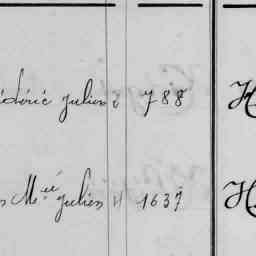 édéric Julien 788 H
s M.ié Julien 1637 H